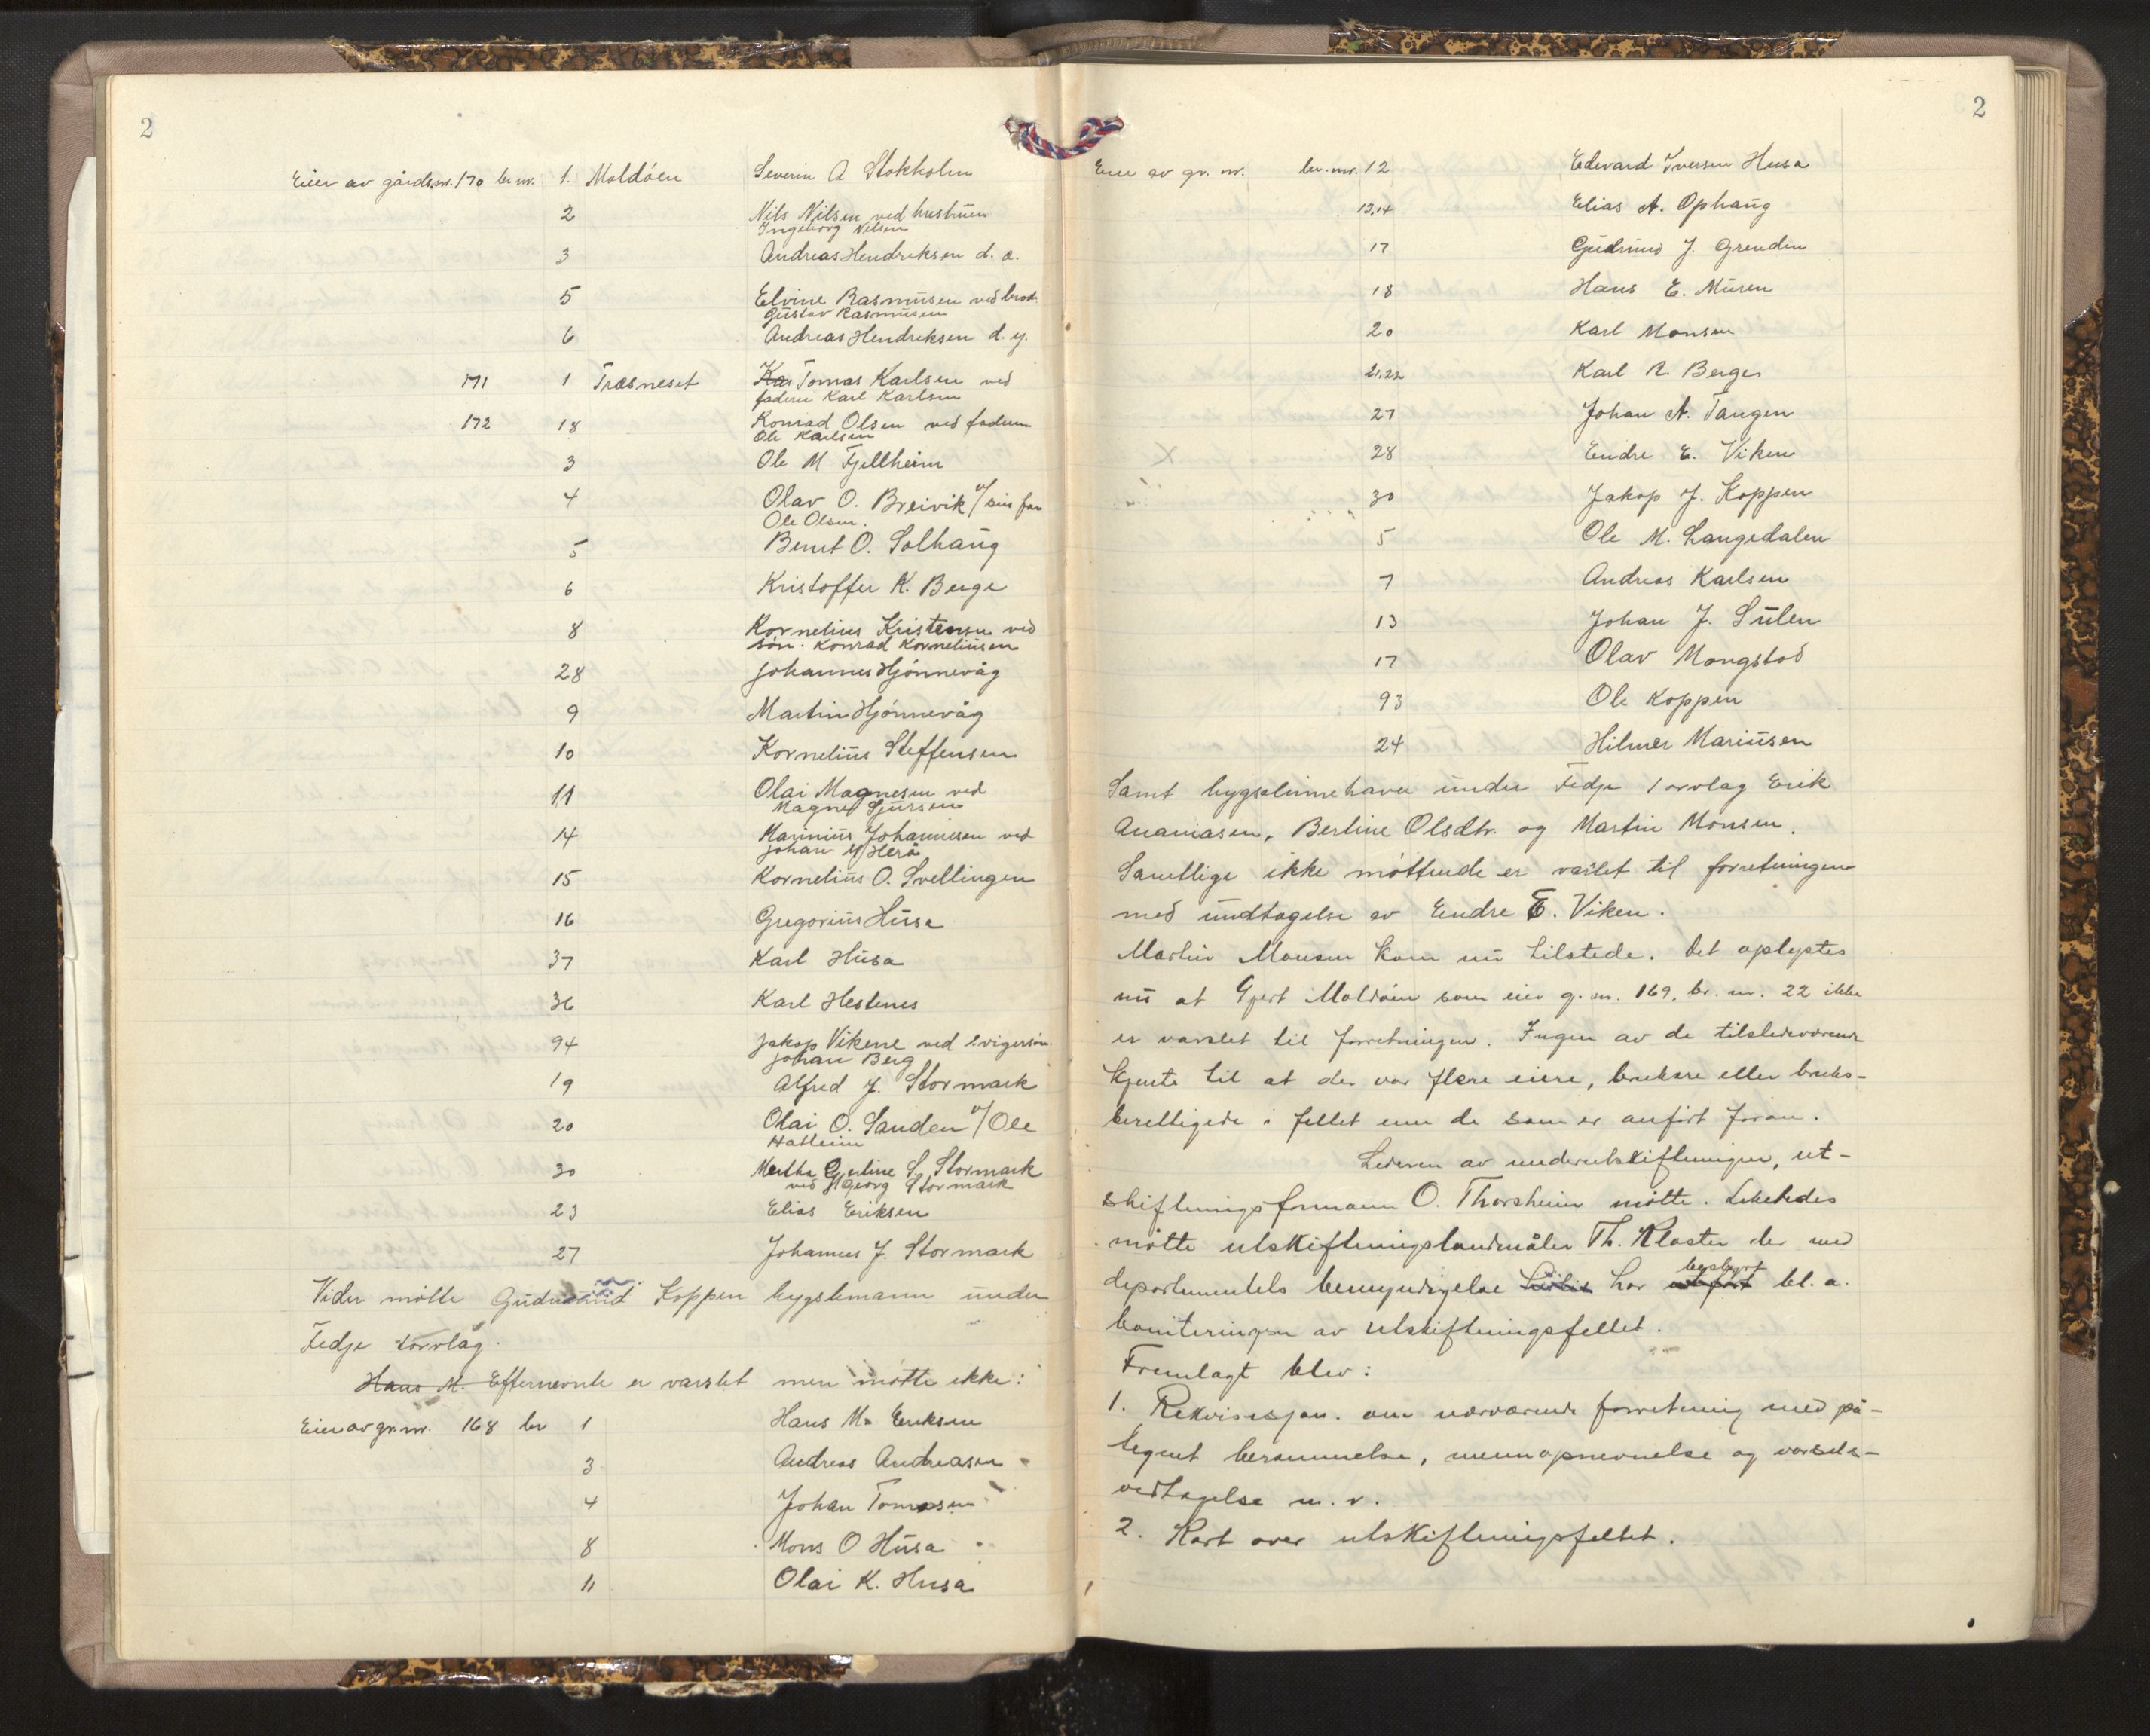 2
Eier av gårdsnr. 170 br nr. 1. Moldöen Severin A Stokholm
2 Nils Nilsen ved hustruen
Ingeborg Nilsen
3 Andreas Hendriksen d. e.
5 Elvine Rasmusen ved brod.
Gustav Rasmusen
6 Andreas Hendriksen d. y.
171 1 Træsneset Kar Tomas Karlsen ved
faderen Karl Karlsen
172 18 Konrad Olsen ved faderen
Ole Karlsen
3 Ole M Fjellheim
4 Olav O. Breivik v/ sin far
Ole Olsen.
5 Bernt O. Solhaug
6 Kristoffer K. Berge
8 Kornelius Kristensen ved
sön. Konrad Korneliusen
28 Johannes Hjönnevåg
9 Martin Hjönnevåg
10 Kornelius Steffensen
11 Olai Magnesen ved
Magne Sjursen
14 Marinius Johannesen ved
Johan M Herå
15 Kornelius O. Svellingen
16 Gregorius Husa
37 Karl Husa
36 Karl Hestenes
94 Jakop Vikene ved svigersön
Johan Berg
19 Alfred J. Stormark
20 Olai O. Sanden v/ Ole
Hatleim
30 Martha Gjertine S. Stormark
ved Georg Stormark
23 Elias Eriksen
27 Johannes J. Stormark
Vider mötte Gudmund Koppen bygslemann under
Fedje torvlag.
Hans M. Efternevnte er varslet men mötte ikke:
Eier av gr. nr. 168 br 1 Hans M. Eriksen
3 Andreas Andreasen
4 Johan Tomasen
8 Mons O Husa
11 Olai K. Husa
2
Eier av gr. nr. br. nr. 12 Edevard Iversen Husa
13,14 Elias A. Ophaug
17 Gudmund J. Grenden
18 Hans E. Muren
20 Karl Monsen
21,22 Karl R. Berge
27 Johan A. Tangen
X 28 Endre E. Viken
30 Jakop J. Koppen
5 Ole M. Langedalen
7 Andreas Karlsen
13 Johan J. Sulen
17 Olav Mongstad
93 Ole Koppen
24 Hilmer Mariusen
Samt bygselinnehaver under Fedje torvlag Erik
Ananiasen, Berline Olsdtr. og Martin Monsen.
Samtlige ikke möttende er varslet til forretningen
med undtagelse av Endre E. Viken.
Martin Monsen kom nu tilstede. Det oplystes
nu at Gjert Moldöen som eier g. nr. 169, br. nr. 22 ikke
er varslet til forretningen. Ingen av de tilstedeværende
kjente til at der var flere eiere, brukere eller bruks-
berettigede i feltet enn de som er anfört foran.
Lederen av underutskiftningen, ut-
skiftningsformann O. Thorsheim mötte. Likeledes
mötte utskiftningslandmåler Th. Kloster der med
departementets bemyndigelse har bestyrt utfört bl. a.
boniteringen av utskiftningsfeltet.
Fremlagt blev:
1. Rekvisisjon. om nærværende forretning med på-
tegnet berammelse, mennopnevnelse og varsels-
vedtagelse m. v.
2. Kart over utskiftningsfeltet.